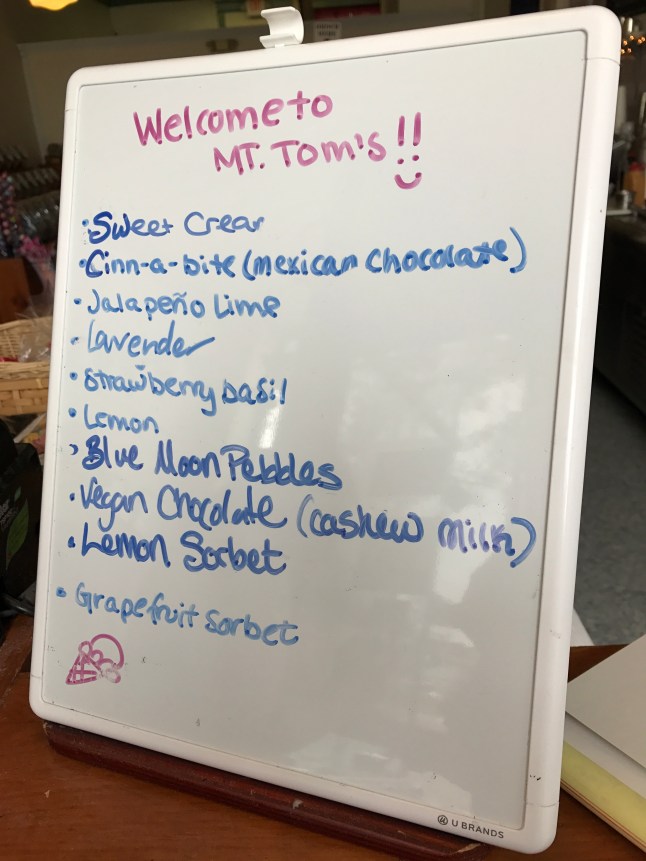 Welcome to
MT. Tom's!!
• Sweet Crear
• Cinn-a-bite (mexican Chocolate)
• Jalapeño Lime
• Lavender
• Strawberry basil
• Lemon
• Blue Moon Pebbles
• Vegan Chocolate (cashew milk)
• Lemon Sorbet
• Grapefruit Sorbet
U BRANDS